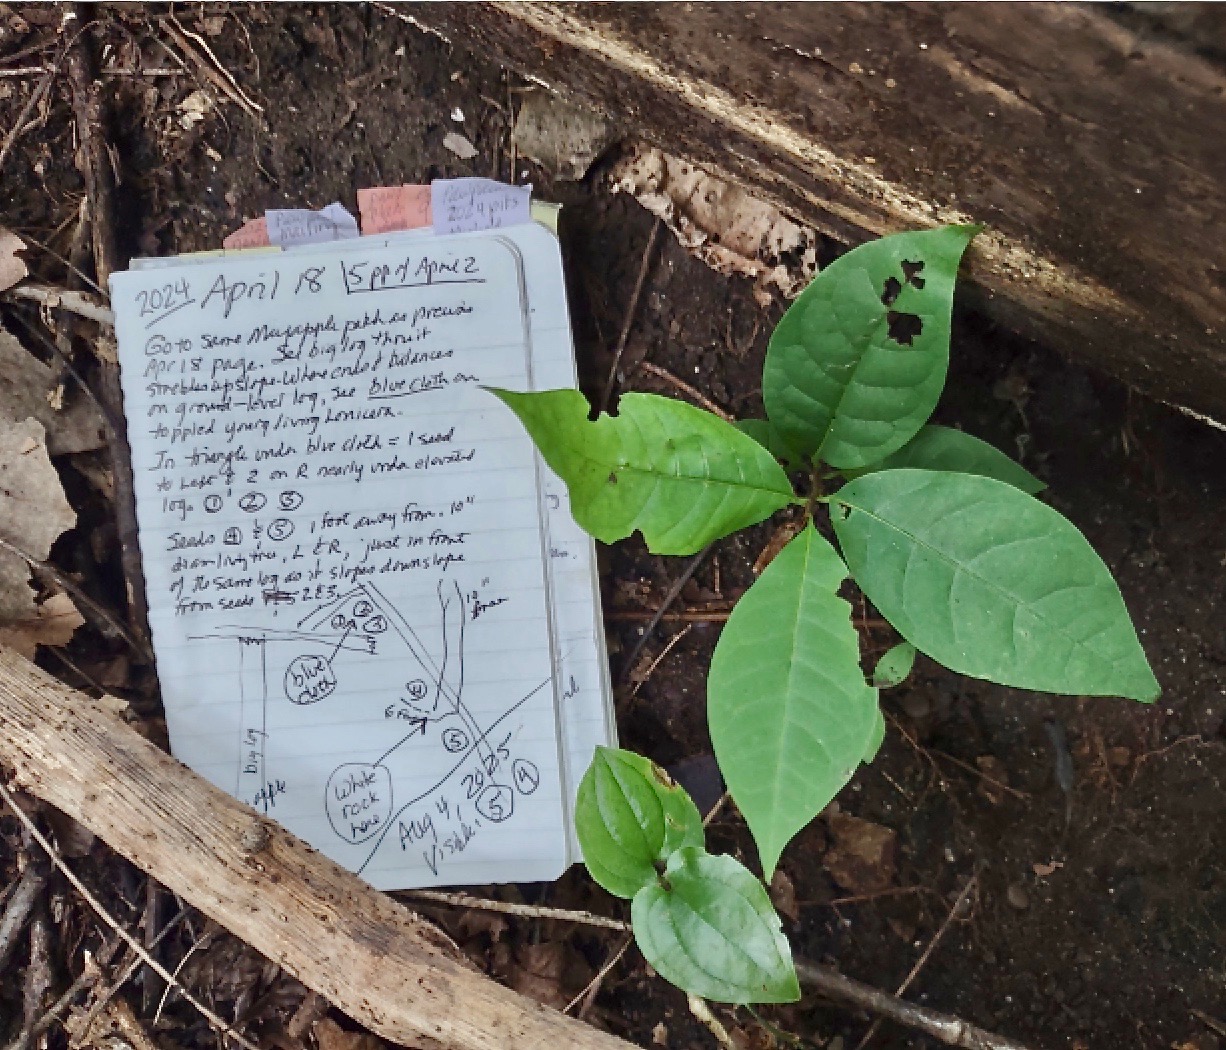 2024 pits
mailing
2024 April 18 5 pp of April 2
Go to same Mayapple patch as previous
Apr 18 page. See big log thru it
upslope. Where end of balances
on ground-level log, see blue cloth on
toppled young living Lonicera.
In triangle under blue cloth = 1 seed
to Left & 2 on R nearly under elevated
log. ① ② ③
Seeds ④ & ⑤, 1 foot away from 10"
diam living tree, L & R, just in front
of the same log as it slopes downslope
from seeds 2 & 3.
② ③
10"
blue
cloth
④
⑤
big log
apple
white
rock
here
Aug 4, 2025
Visible: ⑤ ④